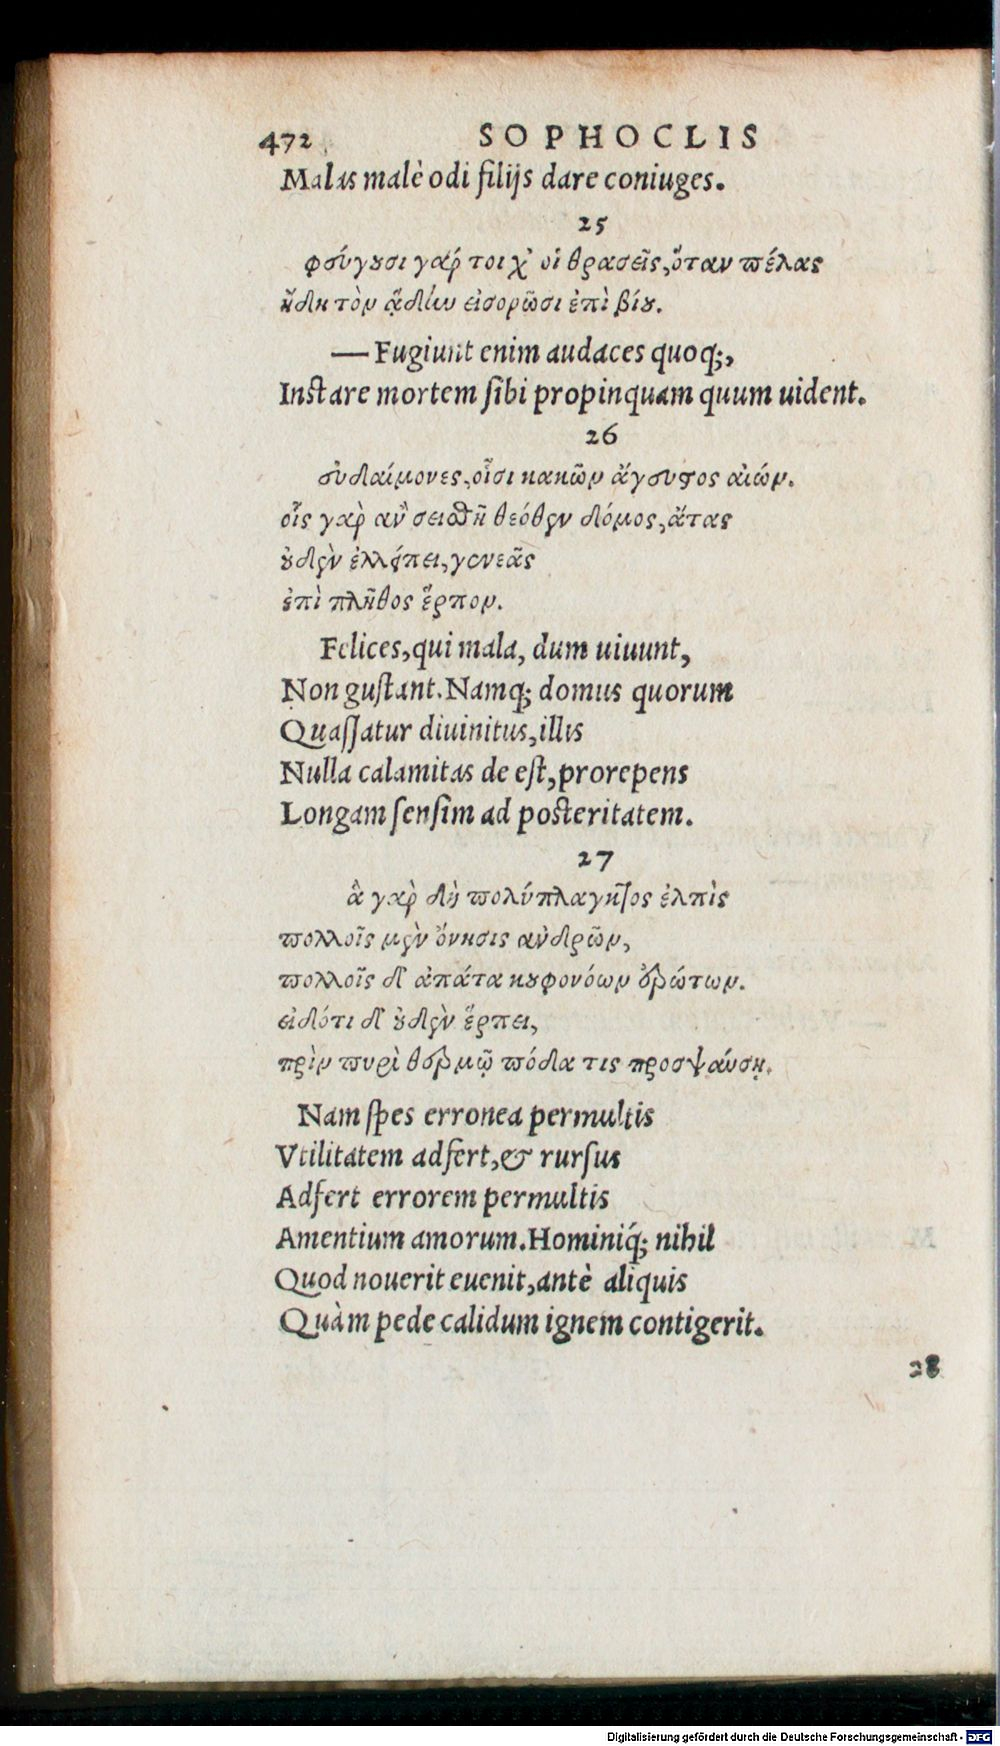 472 SOPHOCLIS
Malas malè odi filijs dare coniuges.
25
φεύγουσι γάρ τοι χ' οἱ θρασεῖς, ὅταν πέλας
ἤδη τὸν ᾅδην εἰσορῶσι ἐπὶ βίου.
— Fugiunt enim audaces quoq;,
Instare mortem sibi propinquam quum uident.
26
εὐδαίμονες, οἷσι κακῶν ἄγευστος αἰών.
οἷς γαρ ἂν σεισθῆ θεόθεν δόμος, ἄτας
οὐδὲν ἐλλείπει, γενεᾶς
ἐπὶ πλῆθος ἕρπον.
Felices, qui mala, dum uiuunt,
Non gustant. Namq; domus quorum
Quassatur diuinitus, illis
Nulla calamitas de est, prorepens
Longam sensim ad posteritatem.
27
ἃ γαρ δὴ πολύπλαγκτος ἐλπὶς
πολλοῖς μὲν ὄνησις ανδρῶν,
πολλοῖς δ' ἀπάτα κουφονόων ἐρώτων.
εἰδότι δ' οὐδὲν ἕρπει,
πρὶν πυρὶ θερμῷ πόδα τις προσψαύσῃ.
Nam spes erronea permultis
Vtilitatem adfert, & rursus
Adfert errorem permultis
Amentium amorum. Hominiq́; nihil
Quod nouerit euenit, antè aliquis
Quàm pede calidum ignem contigerit.
28
Digitalisierung gefördert durch die Deutsche Forschungsgemeinschaft - DFG